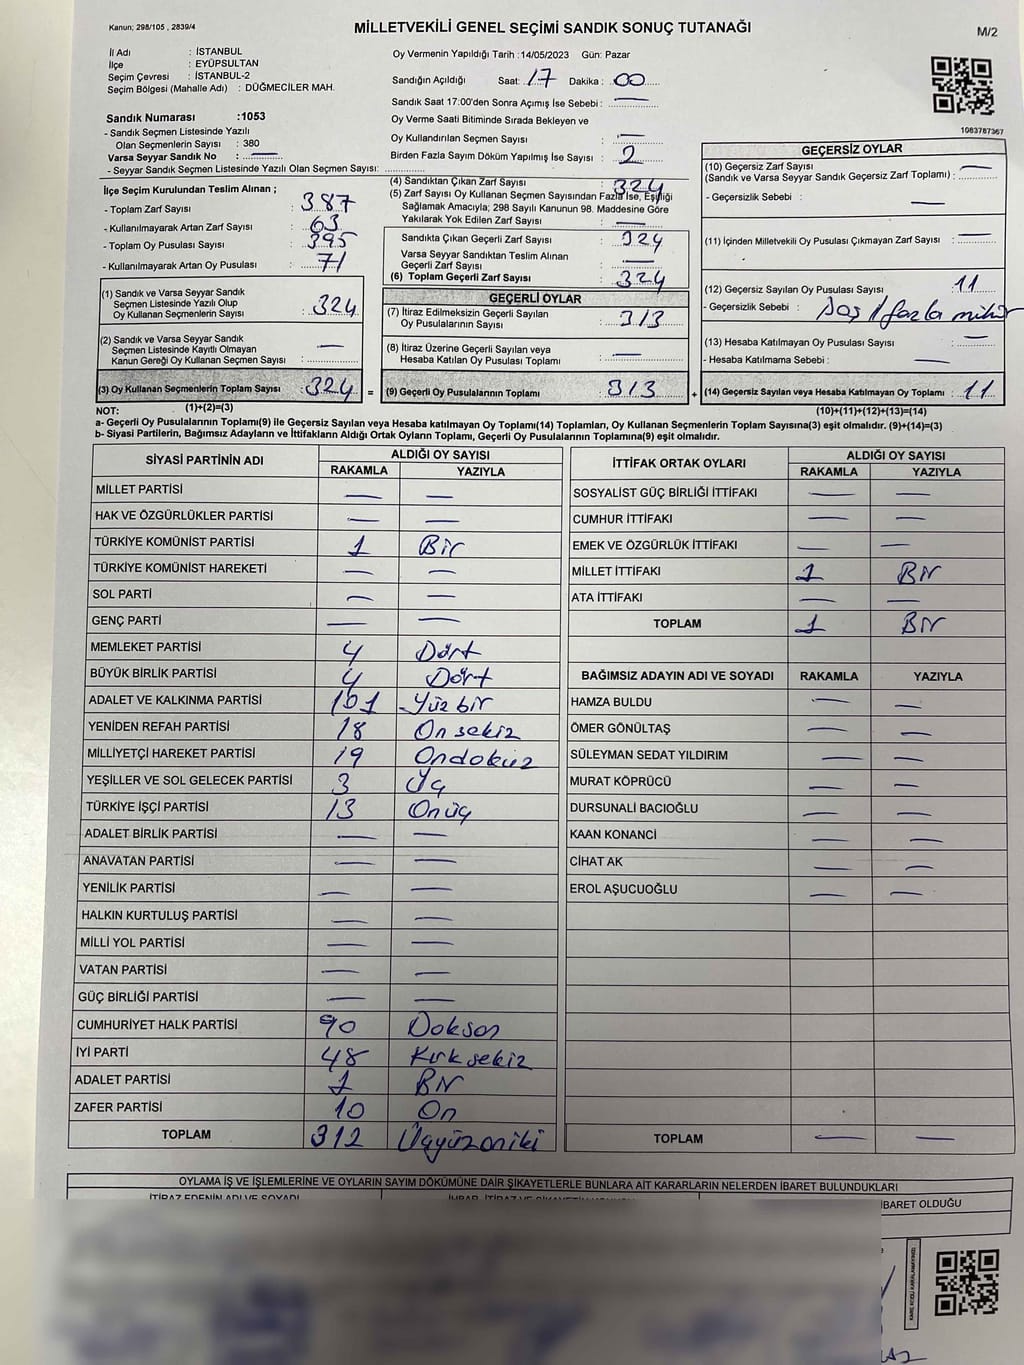 Kanun; 298/105 , 2839/4
MİLLETVEKİLİ GENEL SEÇİMİ SANDIK SONUÇ TUTANAĞI
M/2
İl Adı : İSTANBUL
İlçe : EYÜPSULTAN
Seçim Çevresi : İSTANBUL-2
Seçim Bölgesi (Mahalle Adı) : DÜĞMECİLER MAH.
Sandık Numarası :1053
- Sandık Seçmen Listesinde Yazılı
Olan Seçmenlerin Sayısı : 380
Varsa Seyyar Sandık No : —
- Seyyar Sandık Seçmen Listesinde Yazılı Olan Seçmen Sayısı:
İlçe Seçim Kurulundan Teslim Alınan ;
- Toplam Zarf Sayısı : 387
- Kullanılmayarak Artan Zarf Sayısı : 63
- Toplam Oy Pusulası Sayısı : 395
- Kullanılmayarak Artan Oy Pusulası : 71
(1) Sandık ve Varsa Seyyar Sandık
Seçmen Listesinde Yazılı Olup
Oy Kullanan Seçmenlerin Sayısı : 324
(2) Sandık ve Varsa Seyyar Sandık
Seçmen Listesinde Kayıtlı Olmayan
Kanun Gereği Oy Kullanan Seçmen Sayısı : —
(3) Oy Kullanan Seçmenlerin Toplam Sayısı : 324 =
(1)+(2)=(3)
Oy Vermenin Yapıldığı Tarih :14/05/2023 Gün: Pazar
Sandığın Açıldığı Saat: 17 Dakika : 00
Sandık Saat 17:00'den Sonra Açımış İse Sebebi : —
Oy Verme Saati Bitiminde Sırada Bekleyen ve
Oy Kullandırılan Seçmen Sayısı : —
Birden Fazla Sayım Döküm Yapılmış İse Sayısı : 2
(4) Sandıktan Çıkan Zarf Sayısı : 324
(5) Zarf Sayısı Oy Kullanan Seçmen Sayısından Fazla İse, Eşitliği
Sağlamak Amacıyla; 298 Sayılı Kanunun 98. Maddesine Göre
Yakılarak Yok Edilen Zarf Sayısı : —
Sandıkta Çıkan Geçerli Zarf Sayısı : 324
Varsa Seyyar Sandıktan Teslim Alınan
Geçerli Zarf Sayısı : —
(6) Toplam Geçerli Zarf Sayısı : 324
GEÇERLİ OYLAR
(7) İtiraz Edilmeksizin Geçerli Sayılan
Oy Pusulalarının Sayısı : 313
(8) İtiraz Üzerine Geçerli Sayılan veya
Hesaba Katılan Oy Pusulası Toplamı : —
(9) Geçerli Oy Pusulalarının Toplamı : 313 +
1083787367
GEÇERSİZ OYLAR
(10) Geçersiz Zarf Sayısı
(Sandık ve Varsa Seyyar Sandık Geçersiz Zarf Toplamı) : —
- Geçersizlik Sebebi : —
(11) İçinden Milletvekili Oy Pusulası Çıkmayan Zarf Sayısı : —
(12) Geçersiz Sayılan Oy Pusulası Sayısı : 11
- Geçersizlik Sebebi : boş / fazla mühür
(13) Hesaba Katılmayan Oy Pusulası Sayısı : —
- Hesaba Katılmama Sebebi : —
(14) Geçersiz Sayılan veya Hesaba Katılmayan Oy Toplamı : 11
(10)+(11)+(12)+(13)=(14)
NOT:
a- Geçerli Oy Pusulalarının Toplamı(9) ile Geçersiz Sayılan veya Hesaba katılmayan Oy Toplamı(14) Toplamları, Oy Kullanan Seçmenlerin Toplam Sayısına(3) eşit olmalıdır. (9)+(14)=(3)
b- Siyasi Partilerin, Bağımsız Adayların ve İttifakların Aldığı Ortak Oyların Toplamı, Geçerli Oy Pusulalarının Toplamına(9) eşit olmalıdır.
SİYASİ PARTİNİN ADI ALDIĞI OY SAYISI
RAKAMLA YAZIYLA
MİLLET PARTİSİ — —
HAK VE ÖZGÜRLÜKLER PARTİSİ — —
TÜRKİYE KOMÜNİST PARTİSİ 1 Bir
TÜRKİYE KOMÜNİST HAREKETİ — —
SOL PARTİ — —
GENÇ PARTİ — —
MEMLEKET PARTİSİ 4 Dört
BÜYÜK BİRLİK PARTİSİ 4 Dört
ADALET VE KALKINMA PARTİSİ 101 Yüz bir
YENİDEN REFAH PARTİSİ 18 On sekiz
MİLLİYETÇİ HAREKET PARTİSİ 19 Ondokuz
YEŞİLLER VE SOL GELECEK PARTİSİ 3 Üç
TÜRKİYE İŞÇİ PARTİSİ 13 Onüç
ADALET BİRLİK PARTİSİ — —
ANAVATAN PARTİSİ — —
YENİLİK PARTİSİ — —
HALKIN KURTULUŞ PARTİSİ — —
MİLLİ YOL PARTİSİ — —
VATAN PARTİSİ — —
GÜÇ BİRLİĞİ PARTİSİ — —
CUMHURİYET HALK PARTİSİ 90 Doksan
İYİ PARTİ 48 Kırk sekiz
ADALET PARTİSİ 1 Bir
ZAFER PARTİSİ 10 On
TOPLAM 312 Üçyüzoniki
İTTİFAK ORTAK OYLARI ALDIĞI OY SAYISI
RAKAMLA YAZIYLA
SOSYALİST GÜÇ BİRLİĞİ İTTİFAKI — —
CUMHUR İTTİFAKI — —
EMEK VE ÖZGÜRLÜK İTTİFAKI — —
MİLLET İTTİFAKI 1 Bir
ATA İTTİFAKI — —
TOPLAM 1 Bir
BAĞIMSIZ ADAYIN ADI VE SOYADI RAKAMLA YAZIYLA
HAMZA BULDU — —
ÖMER GÖNÜLTAŞ — —
SÜLEYMAN SEDAT YILDIRIM — —
MURAT KÖPRÜCÜ — —
DURSUNALİ BACIOĞLU — —
KAAN KONANCİ — —
CİHAT AK — —
EROL AŞUCUOĞLU — —
TOPLAM — —
OYLAMA İŞ VE İŞLEMLERİNE VE OYLARIN SAYIM DÖKÜMÜNE DAİR ŞİKAYETLERLE BUNLARA AİT KARARLARIN NELERDEN İBARET BULUNDUKLARI
İTİRAZ EDENİN ADI VE SOYADI
İBARET OLDUĞU